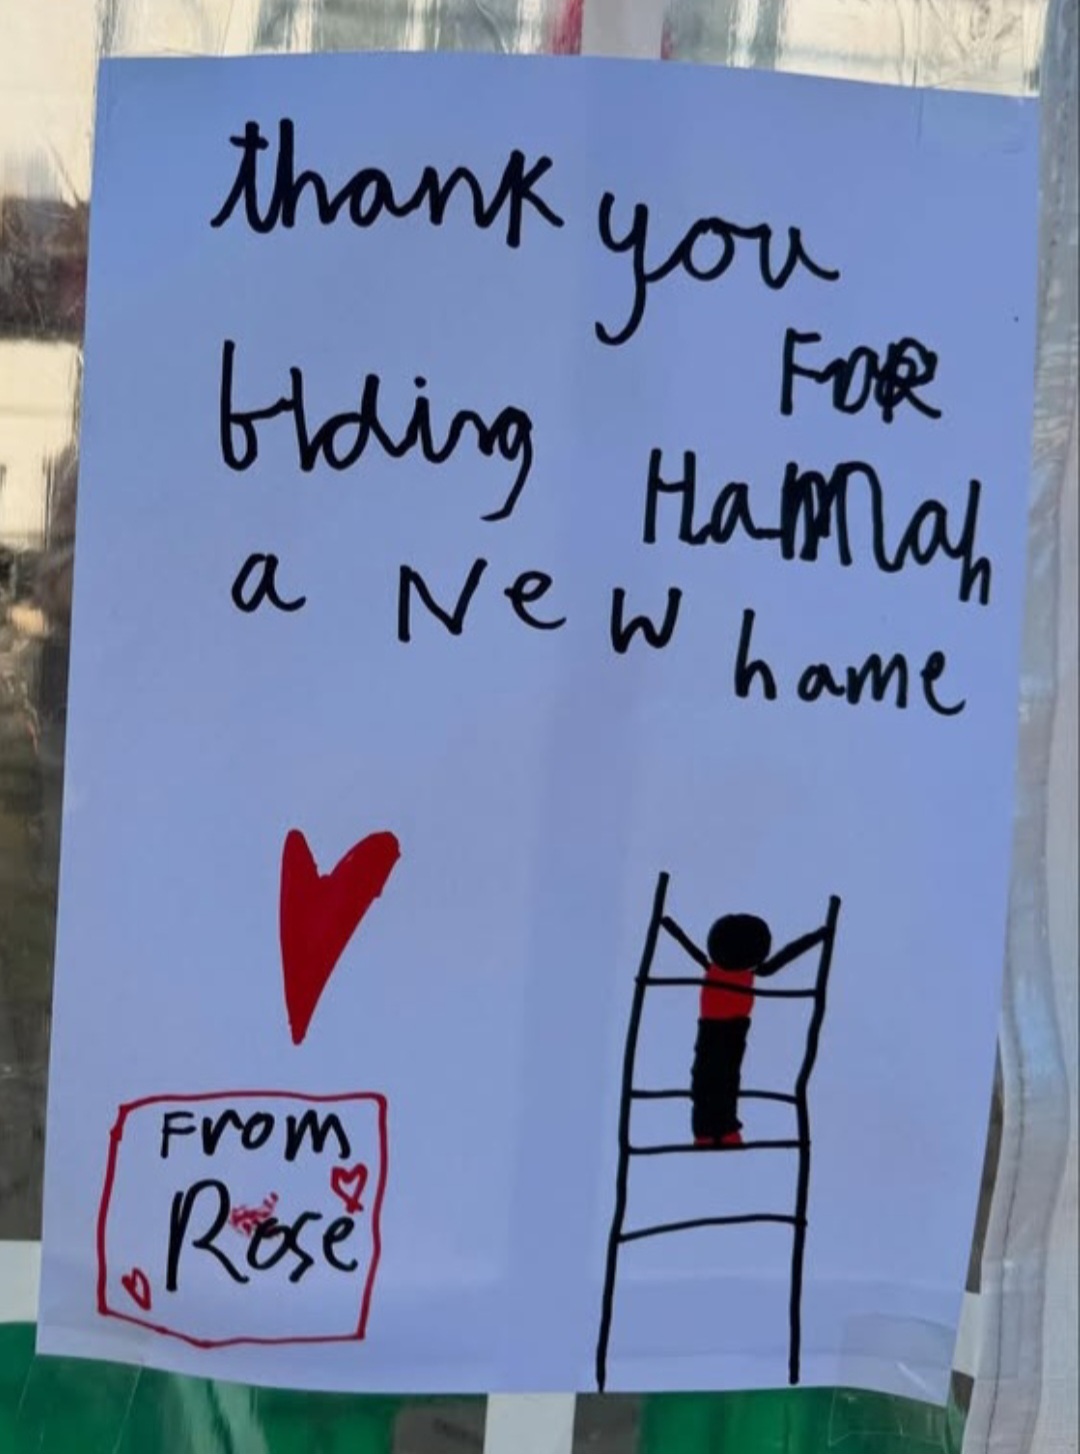 thank you
FOR
blding
Hannah
a New
hame
From
Rose